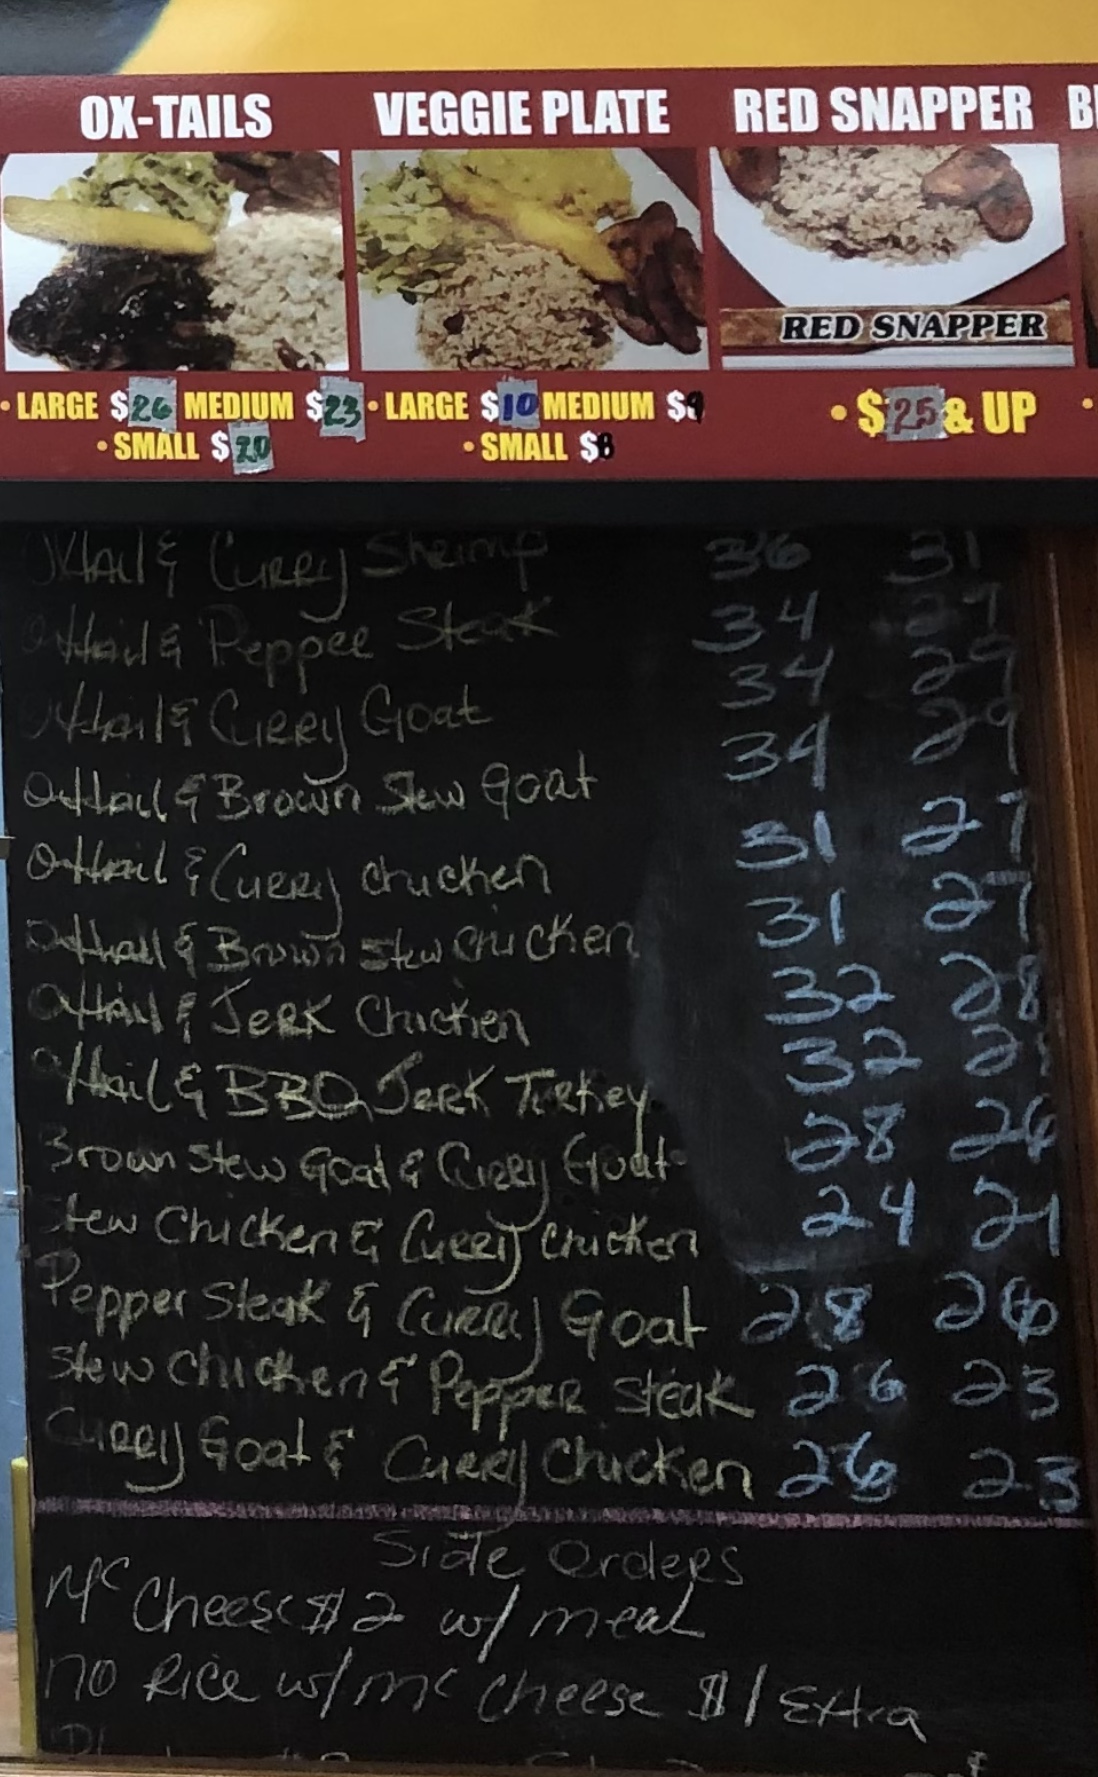 OX-TAILS VEGGIE PLATE RED SNAPPER
RED SNAPPER
• LARGE $26 MEDIUM $23 • LARGE $10 MEDIUM $9 • $25 & UP •
• SMALL $20 • SMALL $8
Oxtail & Curry Shrimp 36 31
Oxtail & Pepper Steak 34 29
Oxtail & Curry Goat 34 29
Oxtail & Brown Stew Goat 34 29
Oxtail & Curry Chicken 31 27
Oxtail & Brown Stew Chicken 31 27
Oxtail & Jerk Chicken 32 28
Oxtail & BBQ Jerk Turkey 32
Brown Stew Goat & Curry Goat 28 26
Stew Chicken & Curry Chicken 24 21
Pepper Steak & Curry Goat 28 26
Stew Chicken & Pepper Steak 26 23
Curry Goat & Curry Chicken 26 23
Side Orders
Mc Cheese $2 w/ meal
NO Rice w/ mc cheese $1 Extra